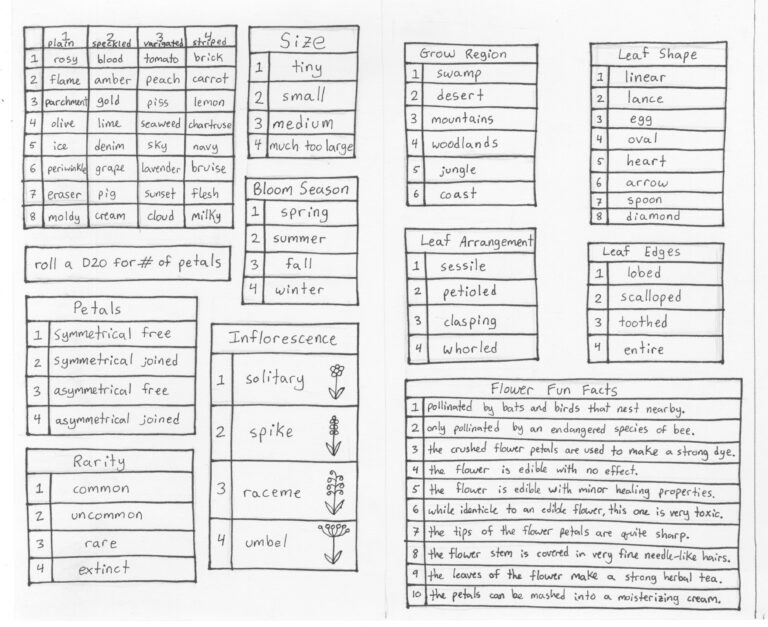 1 2 3 4
plain speckled varigated striped
1 rosy blood tomato brick
2 flame amber peach carrot
3 parchment gold piss lemon
4 olive lime seaweed chartruse
5 ice denim sky navy
6 periwinkle grape lavender bruise
7 eraser pig sunset flesh
8 moldy cream cloud milky
roll a D20 for # of petals
Petals
1 Symmetrical free
2 symmetrical joined
3 asymmetrical free
4 asymmetrical joined
Rarity
1 common
2 uncommon
3 rare
4 extinct
Size
1 tiny
2 small
3 medium
4 much too large
Bloom Season
1 spring
2 summer
3 fall
4 winter
Inflorescence
1 solitary
2 spike
3 raceme
4 umbel
Grow Region
1 swamp
2 desert
3 mountains
4 woodlands
5 jungle
6 coast
Leaf Shape
1 linear
2 lance
3 egg
4 oval
5 heart
6 arrow
7 spoon
8 diamond
Leaf Arrangement
1 sessile
2 petioled
3 clasping
4 whorled
Leaf Edges
1 lobed
2 scalloped
3 toothed
4 entire
Flower Fun Facts
1 pollinated by bats and birds that nest nearby.
2 only pollinated by an endangered species of bee.
3 the crushed flower petals are used to make a strong dye.
4 the flower is edible with no effect.
5 the flower is edible with minor healing properties.
6 while identicle to an edible flower, this one is very toxic.
7 the tips of the flower petals are quite sharp.
8 the flower stem is covered in very fine needle-like hairs.
9 the leaves of the flower make a strong herbal tea.
10 the petals can be mashed into a moisterizing cream.